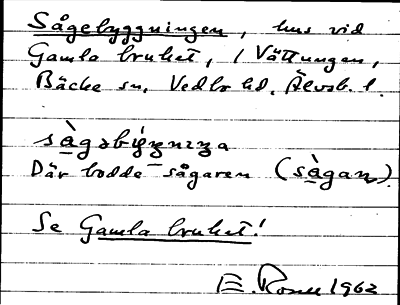 Sågebyggningen, hus vid
Gamla bruket, i Vättungen,
Bäcke sn, Vedbo hd, Älvsb. l.
Där bodde sågaren
Se Gamla bruket!
1962